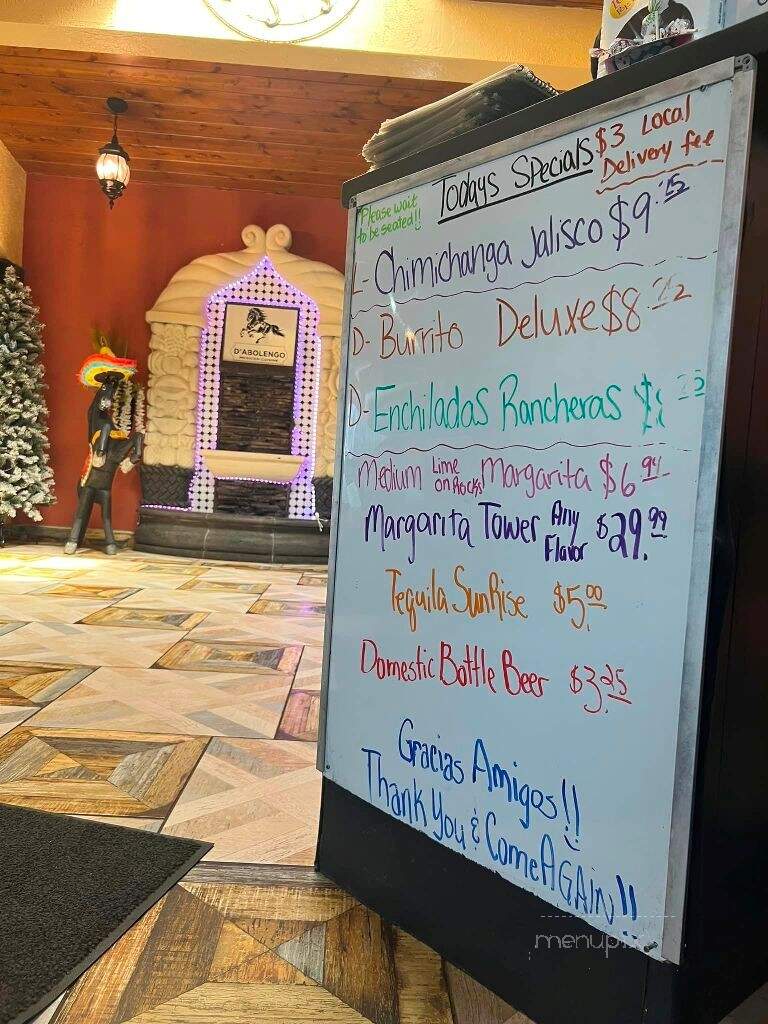 Todays Specials
$3 Local
Delivery fee
Please wait
to be seated!!
L- Chimichanga Jalisco $9
D- Burrito Deluxe $8
D- Enchiladas Rancheras
Medium Lime on Rocks Margarita $6.94
Margarita Tower Any Flavor $29.99
Tequila SunRise $5.00
Domestic Bottle Beer $3.25
Gracias Amigos!!
Thank You & Come AGAIN!!
D'ABOLENGO
menupix